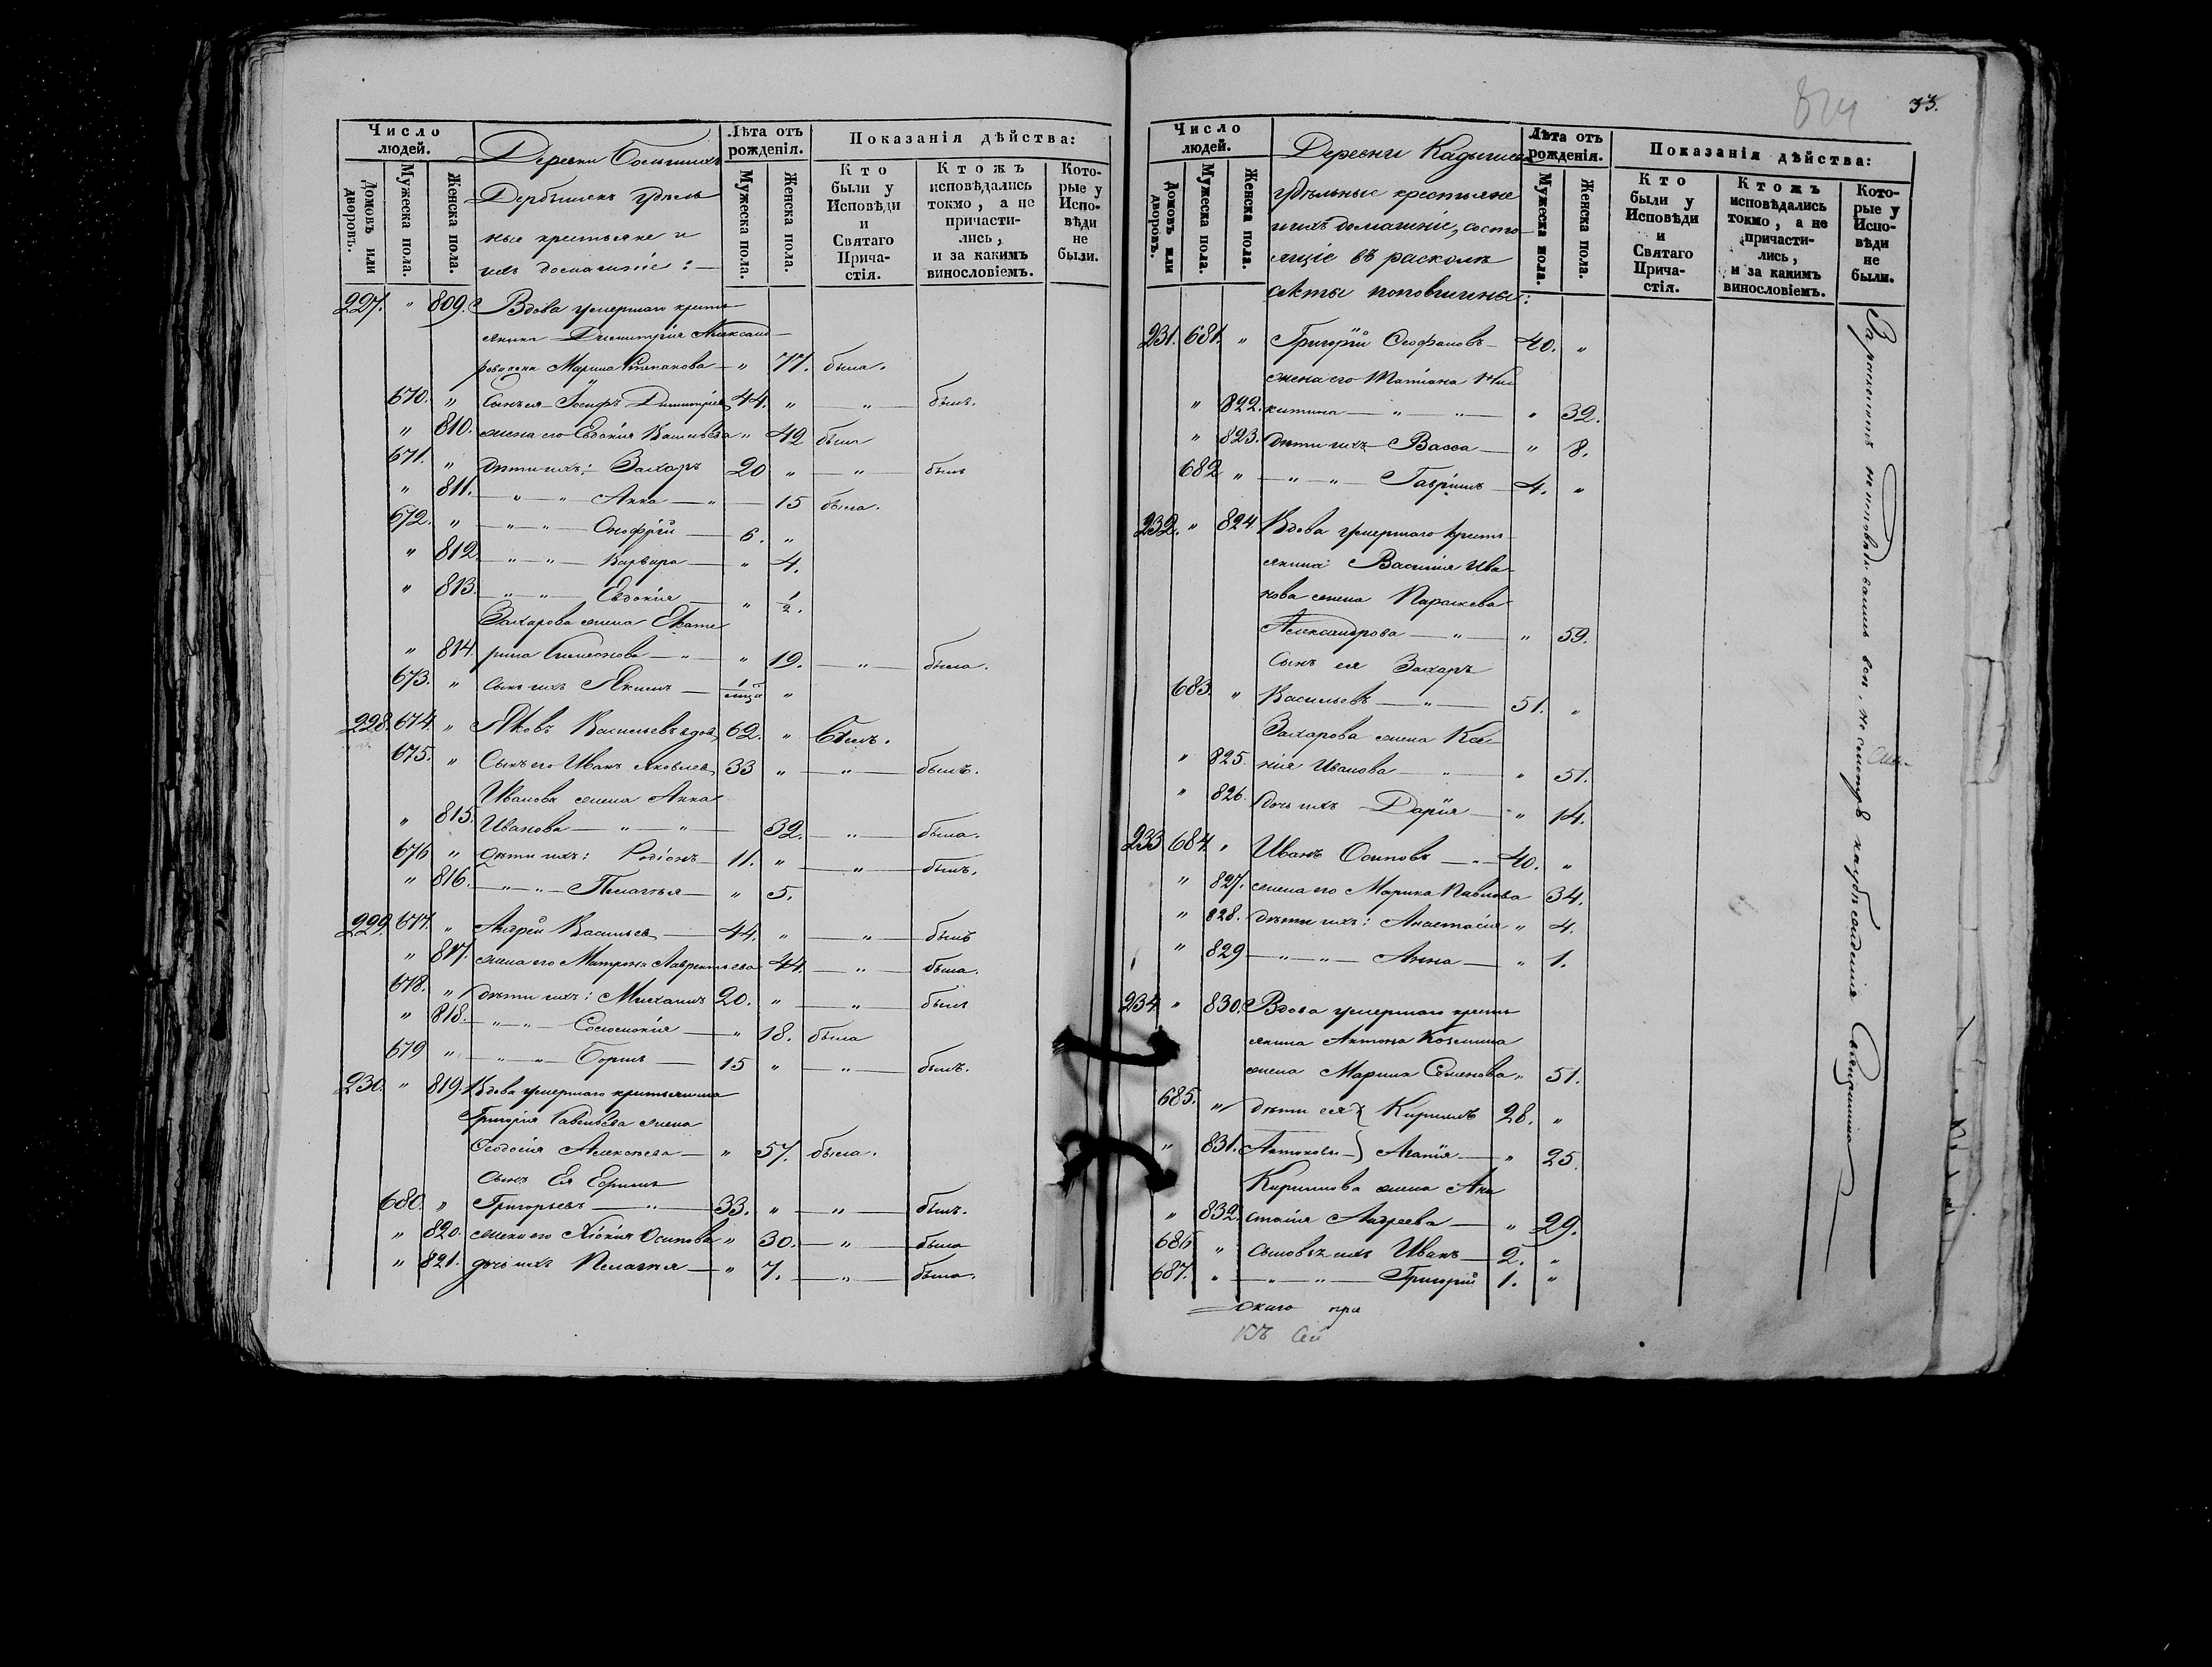 Число людей.
Домовъ или дворовъ.
Мужеска пола.
Женска пола.
Деревни Большихъ
Дербышекъ удѣль
ные крестьяне и
ихъ домашніе:—
Лѣта отъ рожденія.
Мужеска пола.
Женска пола.
Показанія дѣйства:
Кто были у Исповѣди и Святаго Прича-стія.
Ктожъ исповѣдались токмо, а не причасти-лись, и за какимъ винословіемъ.
Кото-рые у Испо-вѣди не были.
227. " 809. Вдова умершаго кресть
янина Димитрія Александ—
рова жена Марина Степанова — " 77. была.
670. " Сынъ ея Іосифъ Димитріев 44. " — " — былъ.
" 810. жена его Евдокія Васильева " 42 была
671. " дѣти ихъ: Захаръ 20 " — " — былъ
" 811. — " — " — Анна — " — 15 была.
672. " — " — " — Онофрій — 6. "
" 812. — " — " — Варвара — " 4.
" 813. — " — " — Евдокія — " 1/2.
Захарова жена Екате
" 814. рина Симеонова — " — " 19. — " — была.
673. " сынъ ихъ Якимъ — 1 мца "
228. 674. " Яковъ Васильевъ вдов. 62. " Былъ.
675. " Сынъ его Иванъ Яковлев 33 " — " — былъ.
Иванова жена Анна
" 815. Иванова — " — " — 32. — " — была.
676 " дѣти ихъ: Родіонъ — 11. " — " — былъ.
" 816. — " — " — Пелагья — " 5.
229. 677. " Андрей Васильев — 44. " — " — былъ
" 817. жена его Матрона Лаврентьева 44. — " — была.
678. " дѣти ихъ: Михаилъ 20. " — " — былъ
" 818. — " — " — Соломонія — " 18. была
679 " — " — " — Борисъ — 15 " — " — былъ.
230. " 819. Вдова умершаго крестьянина
Григорія Савельева жена
Ѳеодосія Алексѣева — " 57. была.
сынъ Ея Ефимъ
680. " Григорьевъ — " — 33. " — " — былъ.
" 820. жена его Хіонія Осипова " 30. — " — была
" 821. дочь ихъ Пелагія — " 7. — " — была.
33.
Число людей.
Домовъ или дворовъ.
Мужеска пола.
Женска пола.
Деревни Кадышева
удѣльные крестьяне
и ихъ домашніе, состо—
ящіе въ расколѣ
секты поповщины:
Лѣта отъ рожденія.
Мужеска пола.
Женска пола.
Показанія дѣйства:
Кто были у Исповѣди и Святаго Прича-стія.
Ктожъ исповѣдались токмо, а не причасти-лись, и за какимъ винословіемъ.
Кото-рые у Испо-вѣди не были.
231. 681. " Григорій Ѳеофановъ — 40. "
жена его Татіана Ни
" 822. китина — " — " — " 32.
" 823. дѣти ихъ — Васса — " 8.
682 " — " — " — Гавріилъ — 4. "
232. " 824 Вдова умершаго кресть
янина Василія Ива—
нова жена Параскева
Александрова — " — " 59.
Сынъ ея Захаръ
683. " Васильевъ — " — 51. "
Захарова жена Ксе—
" 825. нія Иванова — " — " 51.
" 826. дочь ихъ Дарія — " 14.
233 684. " Иванъ Осиповъ — " — 40. "
" 827. жена его Марина Павлова 34.
" 828. дѣти ихъ: Анастасія " 4.
" 829 — " — " — Анна — " 1.
234 " 830. Вдова умершаго кресть
янина Антона Козмина
жена Марина Семенова " 51.
685. " дѣти ея Кириллъ 28. "
" 831. Антоновы Агапія — " 25.
Кириллова жена Ана
" 832. стасія Андреева — " 29.
686 " сыновья ихъ Иванъ — 2. "
687. " — " — " — Григорій 1. "
За расколомъ не исповѣдались всѣ, не смотря на убѣжденія Священника